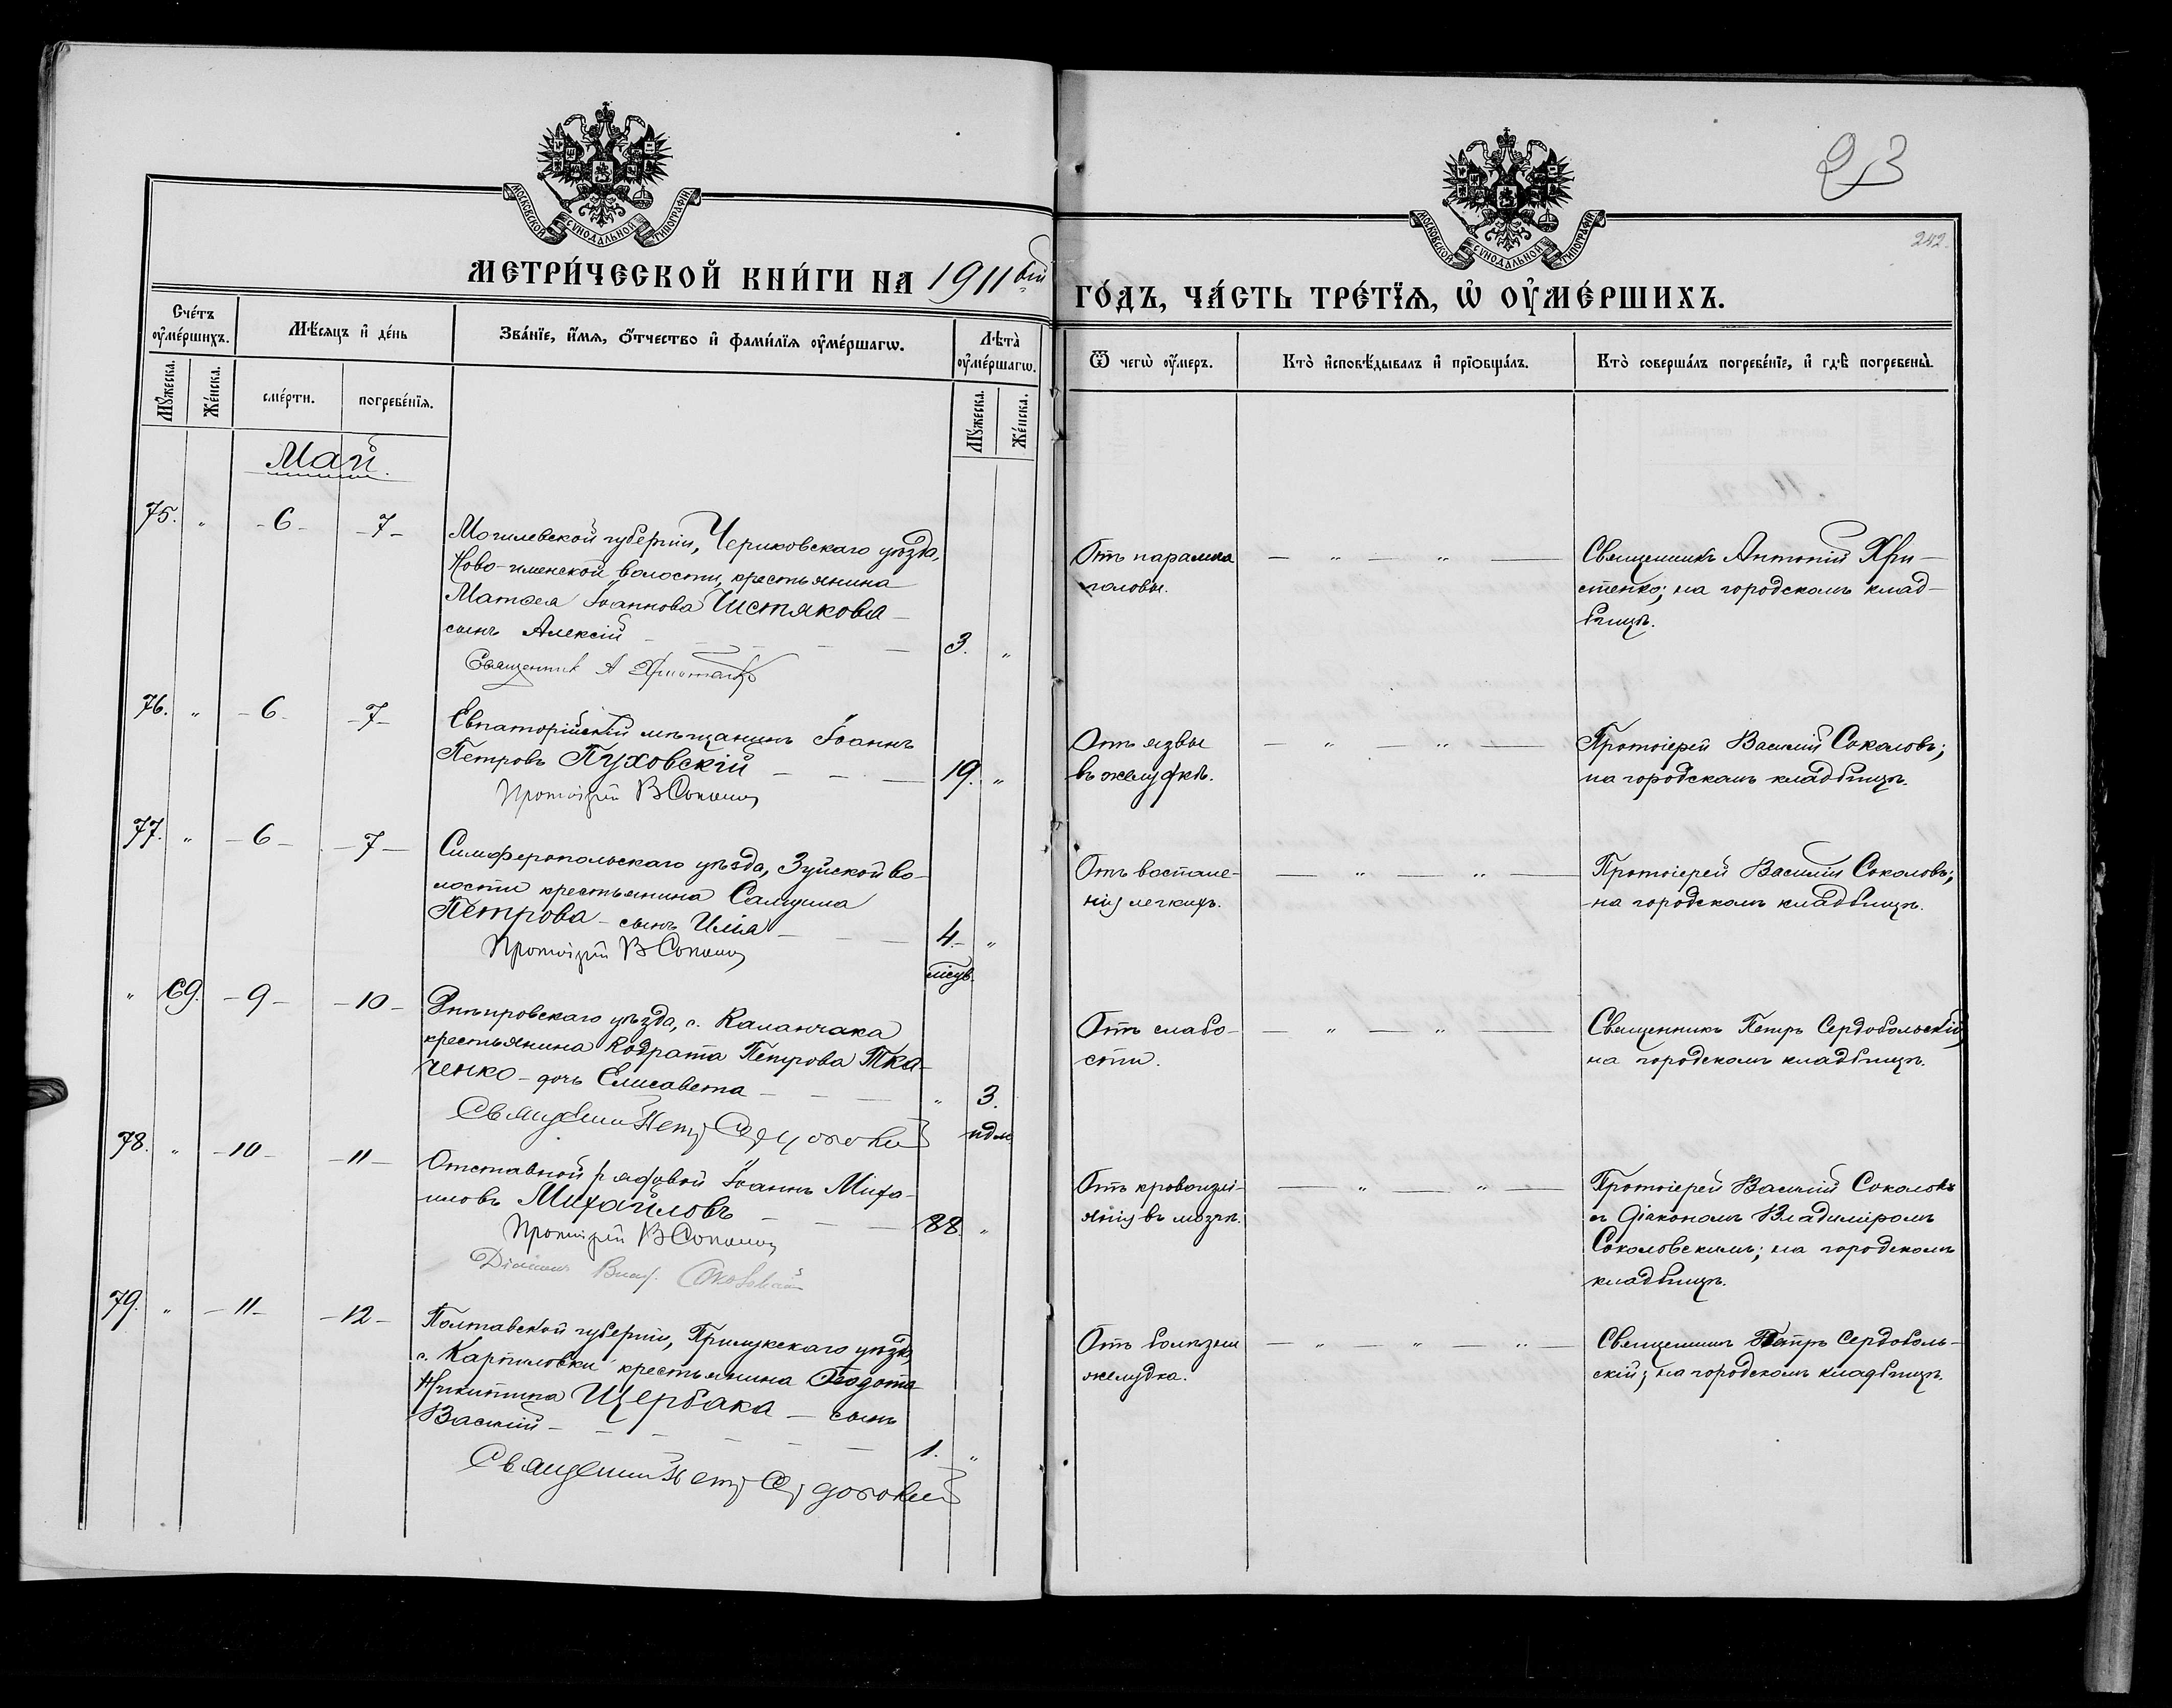 23
242.
МОСКОВСКОЙ СѴНОДАЛЬНОЙ ТИПОГРАФІИ
МОСКОВСКОЙ СѴНОДАЛЬНОЙ ТИПОГРАФІИ
МЕТРИ́ЧЕСКОЙ КНИ́ГИ НА 1911 ый
ГО́ДЪ, ЧА́СТЬ ТРЕ́ТЇѦ, Ѡ҆ ОУ҆МЕ́РШИХЪ.
Сче́тъ оу҆ме́ршихъ.
Мꙋ́жеска.
Же́нска.
Мѣ́сяцъ и҆ де́нь
сме́рти.
погребе́нїѧ.
Зва́нїе, и҆́мѧ, ѻ҆́тчество и҆ фами́лїѧ оу҆ме́ршагѡ.
Лѣта̀ оу҆ме́ршагѡ.
Мꙋ́жеска.
Же́нска.
Ѿ чегѡ̀ оу҆́меръ.
Кто̀ и҆сповѣ́дывалъ и҆ прїѡбща́лъ.
Кто̀ соверша́лъ погребе́нїе, и҆ гдѣ̀ погребены̀.
Май.
75. " - 6 - - 7 -
Могилевской губерніи, Чериковскаго уѣзда,
Ново-ельненской волости, крестьянина
Матѳея Іоаннова Чистякова
сынъ Алексій 3. "
Священник А Христенко
Отъ паралича
головы.
Священникъ Антоній Хри-
стенко; на городскомъ клад-
бищѣ.
76. " - 6 - - 7 -
Евпаторійскій мѣщанинъ Іоаннъ
Петровъ Пуховскій 19. "
Протоіерей В Соколов
Отъ язвы
въ желудкѣ.
Протоіерей Василій Соколовъ;
на городскомъ кладбищѣ.
77. " - 6 - - 7 -
Симферопольскаго уѣзда, Зуйской во-
лости крестьянина Самуила
Петрова - сынъ Илія 4. "
мѣсяц.
Протоіерей В Соколов
Отъ воспале-
нія легкихъ.
Протоіерей Василій Соколовъ;
на городскомъ кладбищѣ.
" 69. - 9 - - 10 -
Днѣпровскаго уѣзда, с. Каланчака
крестьянина Кодрата Петрова Тка-
ченко - дочь Елисавета " 3.
ндл.
Священник Петр Сердобольский
Отъ слабо-
сти.
Священникъ Петръ Сердобольскій;
на городскомъ кладбищѣ.
78. " - 10 - - 11 -
Отставной рядовой Іоаннъ Миха-
иловъ Михайловъ 88. "
Протоіерей В Соколов
Діаконъ Влад. Соколовскій
Отъ кровоизлі-
янія въ мозгъ.
Протоіерей Василій Соколовъ
съ діакономъ Владиміромъ
Соколовскимъ; на городскомъ
кладбищѣ.
79. " - 11 - - 12 -
Полтавской губерніи, Прилукскаго уѣзда,
с. Карпиловки крестьянина Ѳеодота
Никитина Щербака - сынъ
Василій 1. "
Священник Петр Сердобольский
Отъ болѣзни
желудка.
Священникъ Петръ Сердоболь-
скій; на городскомъ кладбищѣ.